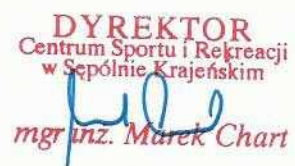 DYREKTOR
Centrum Sportu i Rekreacji
w Sępólnie Krajeńskim
mgr inż. Marek Chart